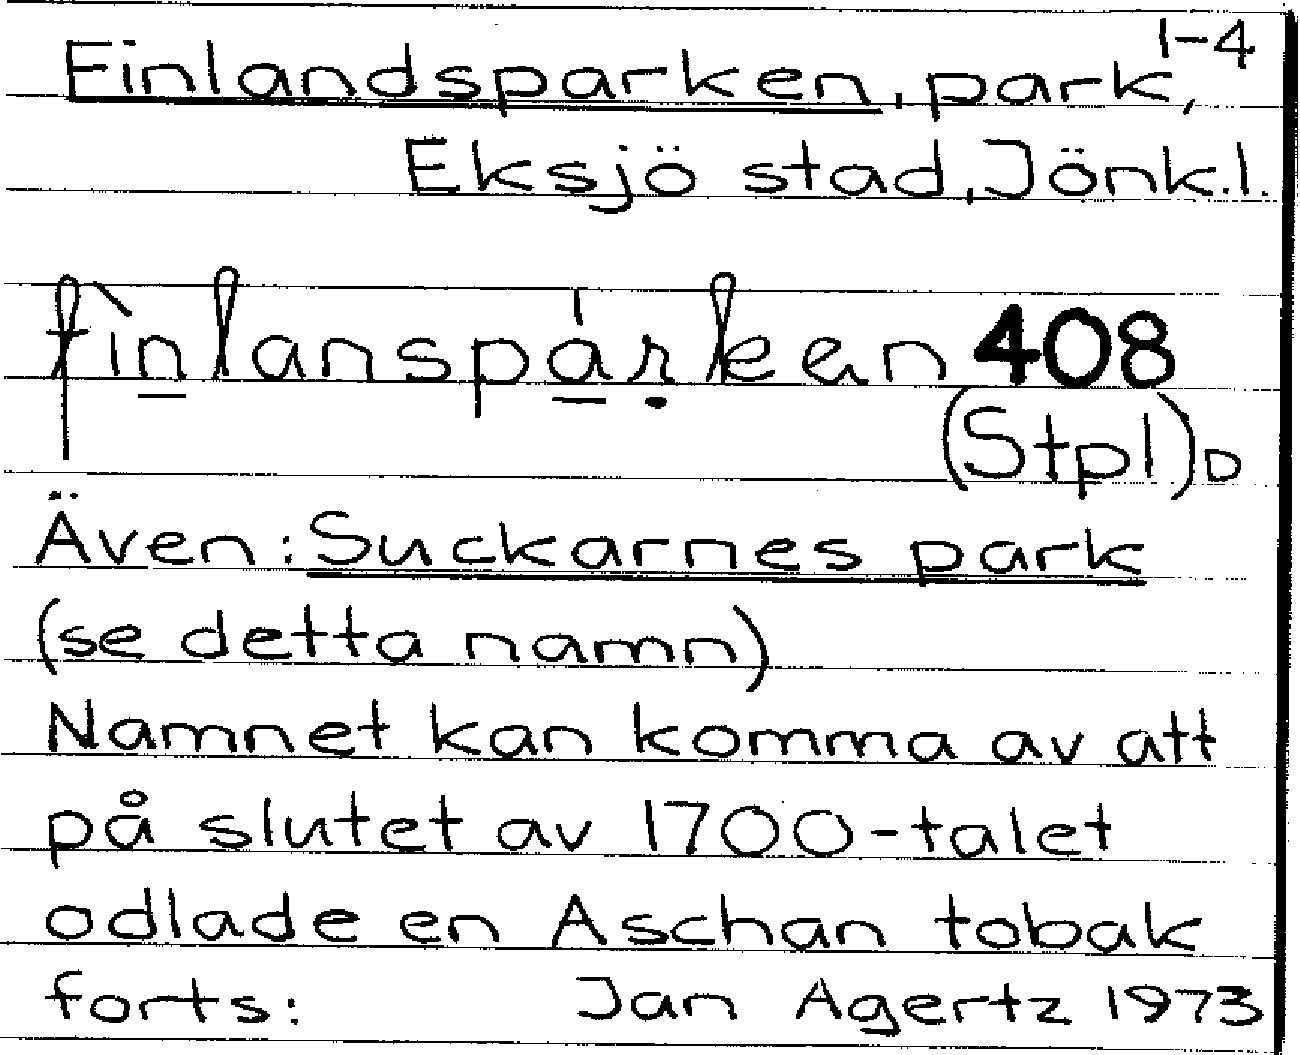 1-4
Finlandsparken, park,
Eksjö stad, Jönk.l.
fìnlanspárken 408
(Stpl)D
Även: Suckarnes park
(se detta namn)
Namnet kan komma av att
på slutet av 1700-talet
odlade en Aschan tobak
forts: Jan Agertz 1973